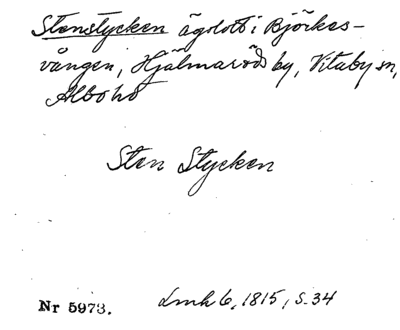 Stenstycken ägolott i Björkes-
vången, Hjälmaröds by, Vitaby sn,
Albo hd
Sten Stycken
Nr 5973. Lmk 6, 1815, s. 34